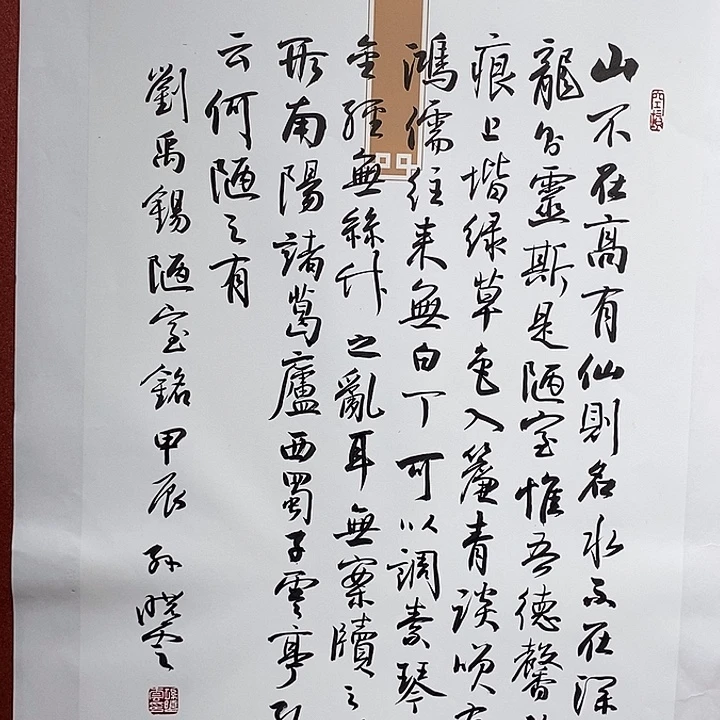 山不在高有仙則名水不在深
龍則靈斯是陋室惟吾德馨
痕上堦綠草色入簾青談咲有
鴻儒往來無白丁可以調素琴
金經無絲竹之亂耳無案牘之
形南陽諸葛廬西蜀子雲亭孔
云何陋之有
劉禹錫陋室銘甲辰孫曉雲